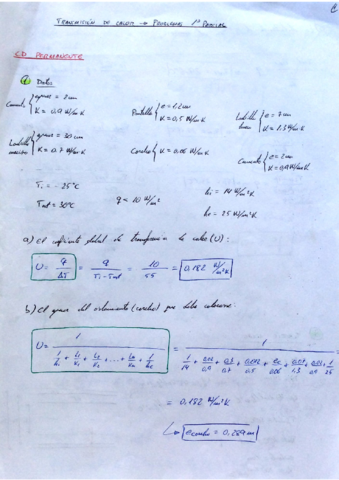 TRANSMISIÓN DE CALOR → PROBLEMAS 1º PARCIAL
C.D. PERMANENTE
Datos
Cemento { grueso = 2 cm
K = 0,9 W/mK
Plaquilla { e = 1,2 cm
K = 0,5 W/mK
Ladrillo { e = 7 cm
K = 1,3 W/mK
Ladrillo macizo { grueso = 30 cm
K = 0,7 W/mK
Corcho { K = 0,06 W/mK
Cemento { e = 2 cm
K = 0,9 W/mK
Ti = -25°C
Text = 30°C
q < 10 W/m²
hi = 14 W/m²K
he = 25 W/m²K
a) El coeficiente global de transferencia de calor (U):
U = q/ΔT = q/Ti - Text = 10/55 = 0,182 W/m²K
b) El grueso del aislamiento (corcho) que debe colocarse:
U = 1/(1/hi + L1/K1 + L2/K2 + ... + Ln/Kn + 1/he) = 1
= 0,182 W/m²K
↳ e corcho = 0,269 m